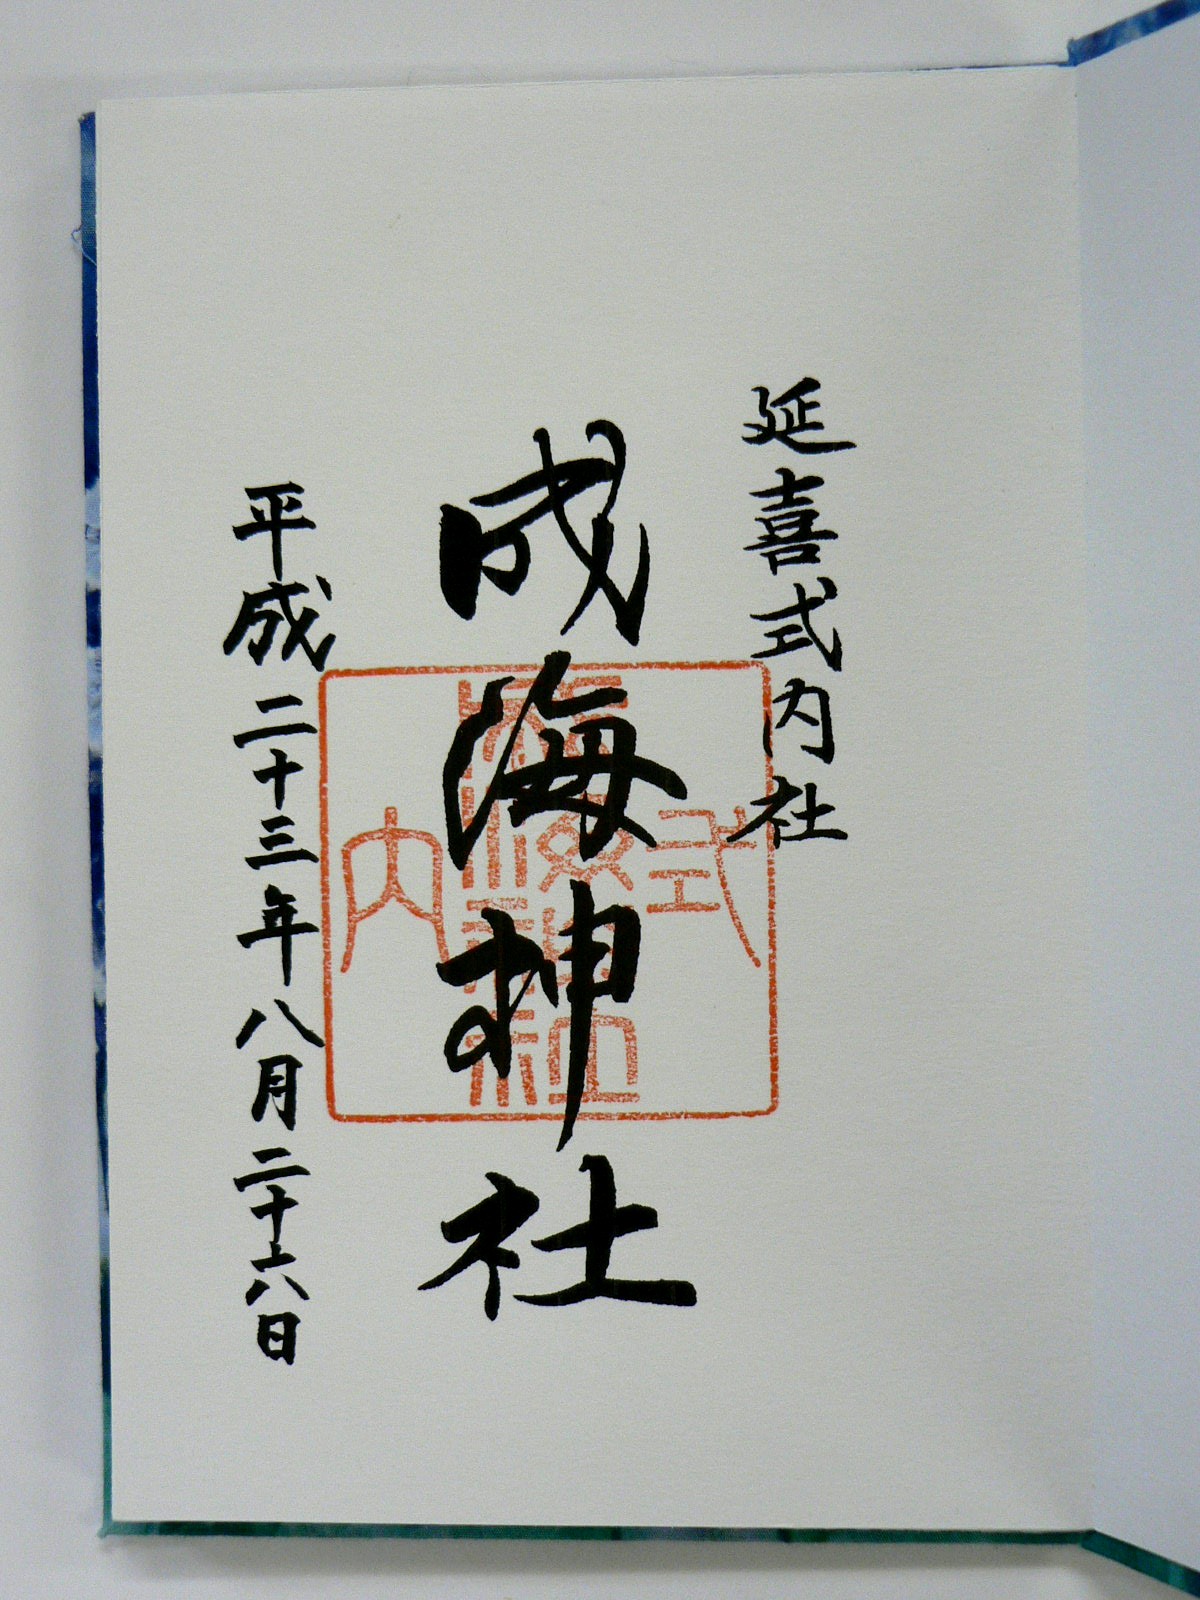 延喜式内社
成海神社
平成二十三年八月二十六日
式
成海神社
内